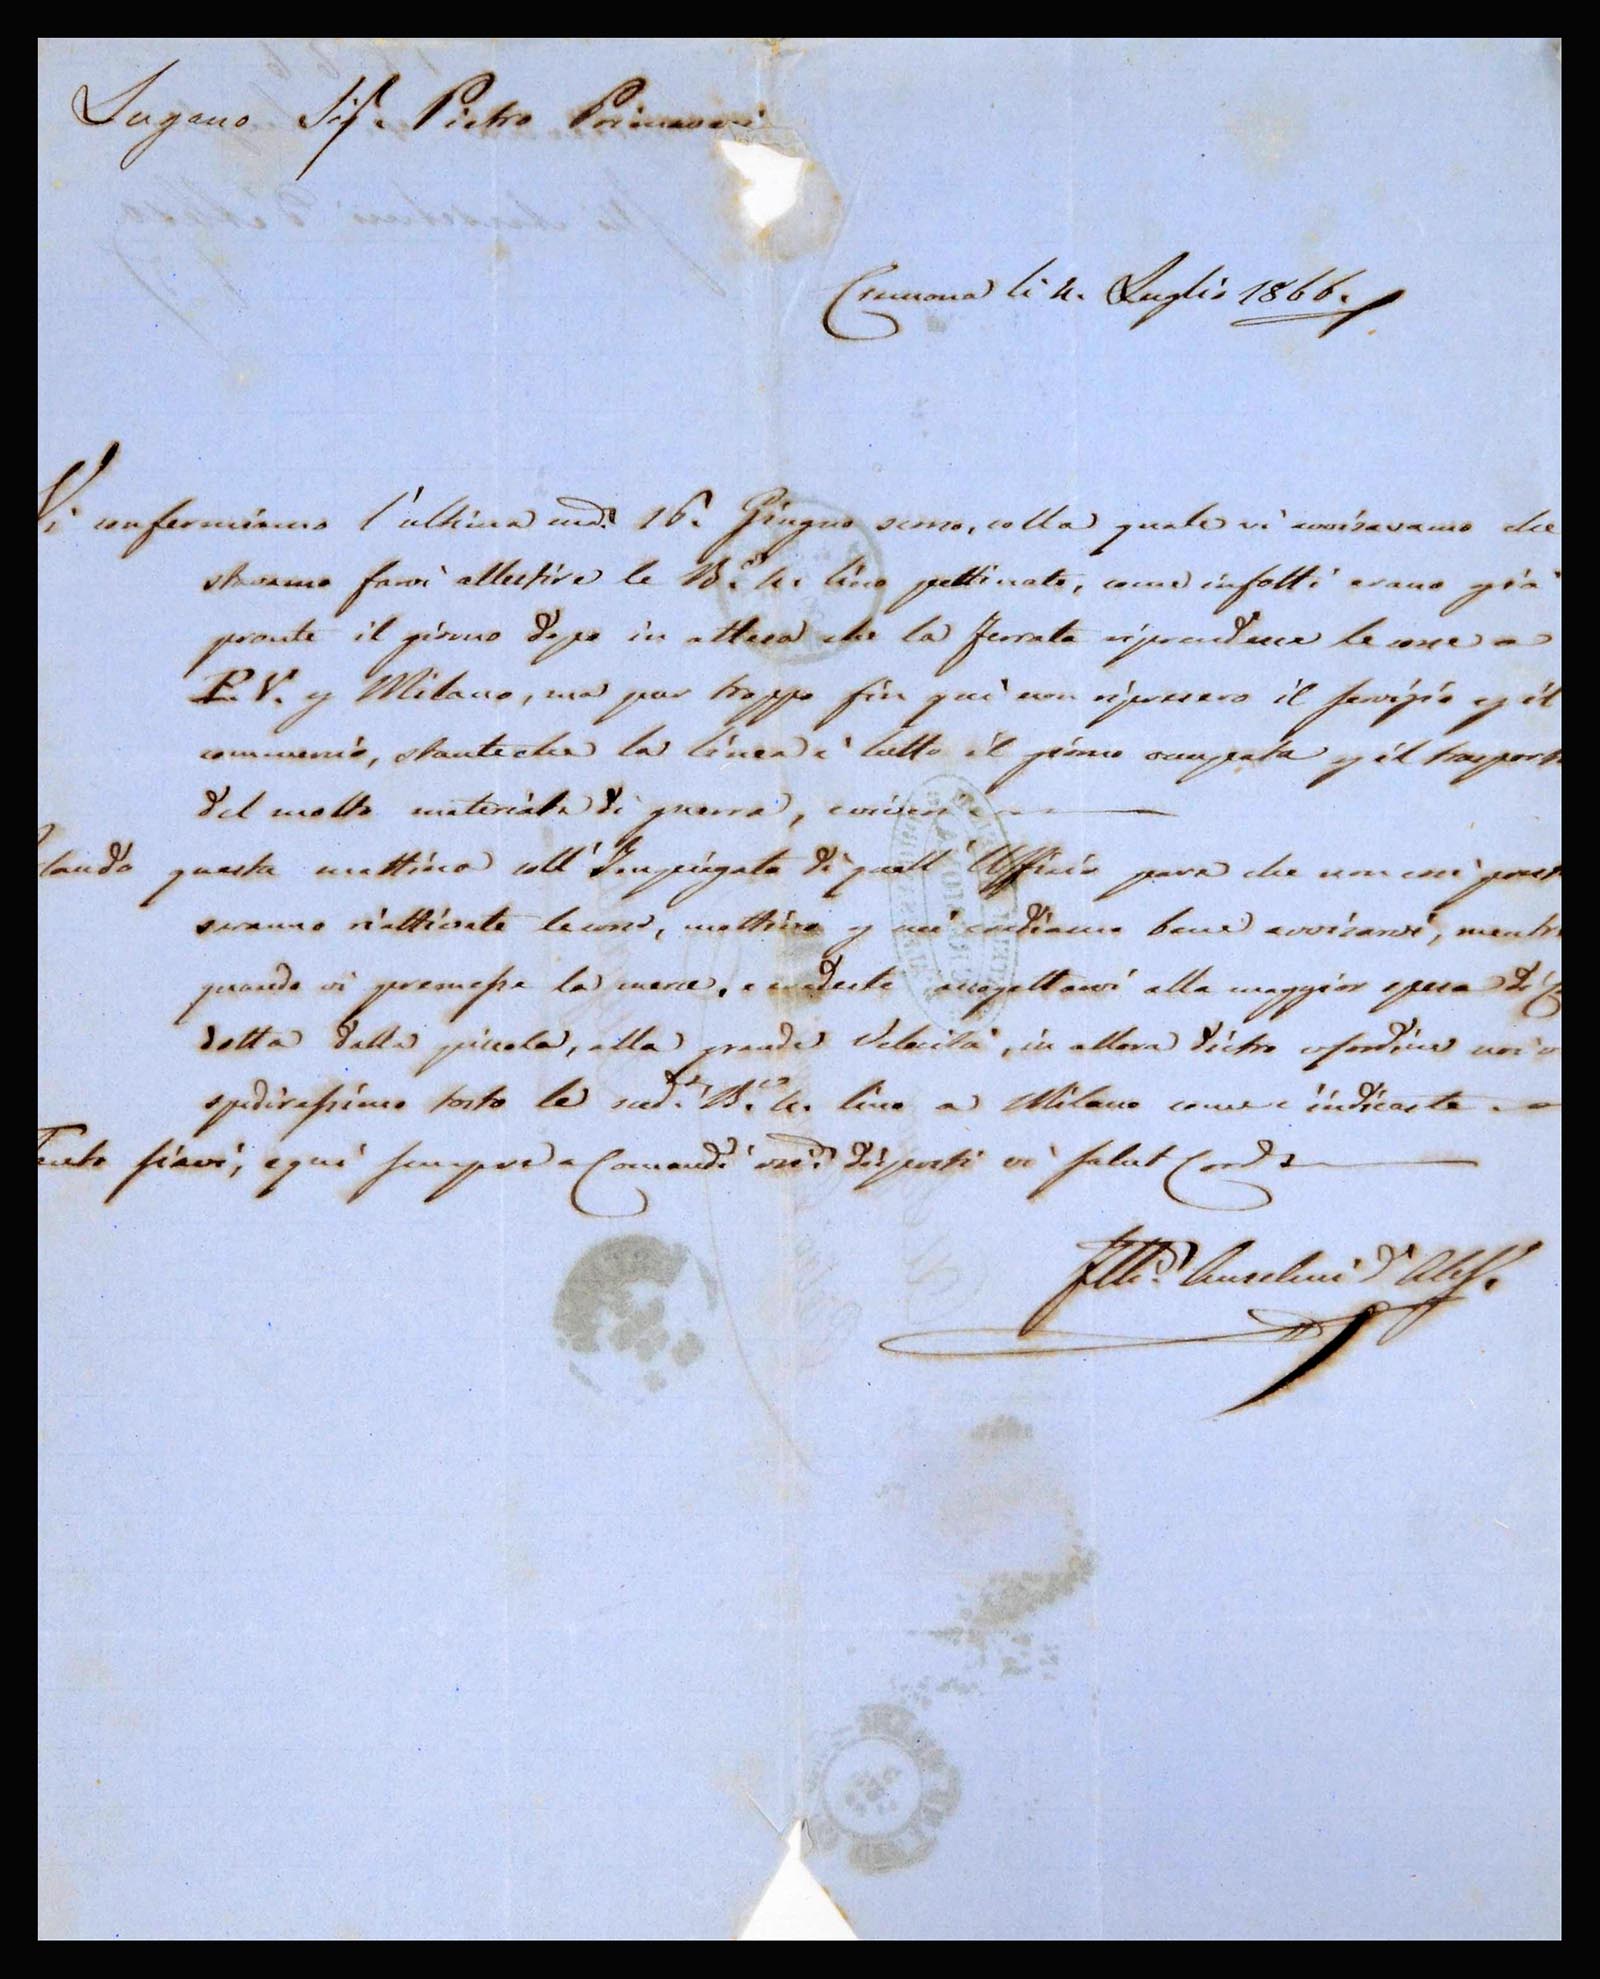 Lugano Sigr. Pietro Primavesi
Cremona li 4. Luglio 1866.
Vi confermiamo l'ultima ns. 16. Giugno scorso, colla quale vi avvisavamo che
stavamo farvi allestire le B.e 4. lino pettinato, come infatti erano già
pronte il giorno dopo in attesa che la Ferrata riprendesse le corse a
P.V. p Milano, ma pur troppo fin qui non ripresero il servizio p il
commercio, stanteche la linea è tutto il giorno occupata p il trasporto
del molto materiale di guerra, viveri
questa mattina coll'Impiegato di quell'Ufficio pare che non così presto
saranno riattivate le corse, p cui crediamo bene avvisarvi, mentre
quando vi premesse la merce, e credeste assogettarvi alla maggior spesa di
dotta dalla piccola, alla grande Velocità, in allora dietro vs ordine noi
spediressimo tosto le sud.e B.e 4. lino a Milano come c'indicaste.
Tanto siavi, e qui sempre a Comandi vs. disposti vi salut Cord
Flli. Anselmi d' Aless.